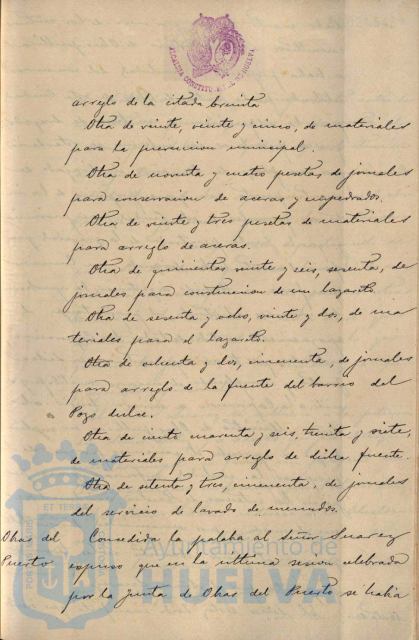 ALCALDIA CONSTITUCIONAL DE HUELVA
arreglo de la citada bomita
Otra de veinte, veinte y cinco, de materiales
para la prevencion municipal.
Otra de noventa y cuatro pesetas de jornales
para conservacion de aceras y empedrados.
Otra de veinte y tres pesetas de materiales
para arreglo de aceras.
Otra de quinientas veinte y seis, sesenta, de
jornales para construccion de un lazareto.
Otra de sesenta y ocho, veinte y dos, de ma
teriales para el lazareto.
Otra de ochenta y dos, cincuenta, de jornales
para arreglo de la fuente del barrio del
Pozo dulce.
Otra de ciento cuarenta y seis, treinta y siete,
de materiales para arreglo de dicha fuente.
Otra de setenta y tres, cincuenta, de jornales
del servicio de lavado de menudos.
Obras del
Puerto
Concedida la palabra al Señor Suarez
expuso que en la ultima sesion celebrada
por la Junta de Obras del Puerto se habia
Ayuntamiento de
HUELVA